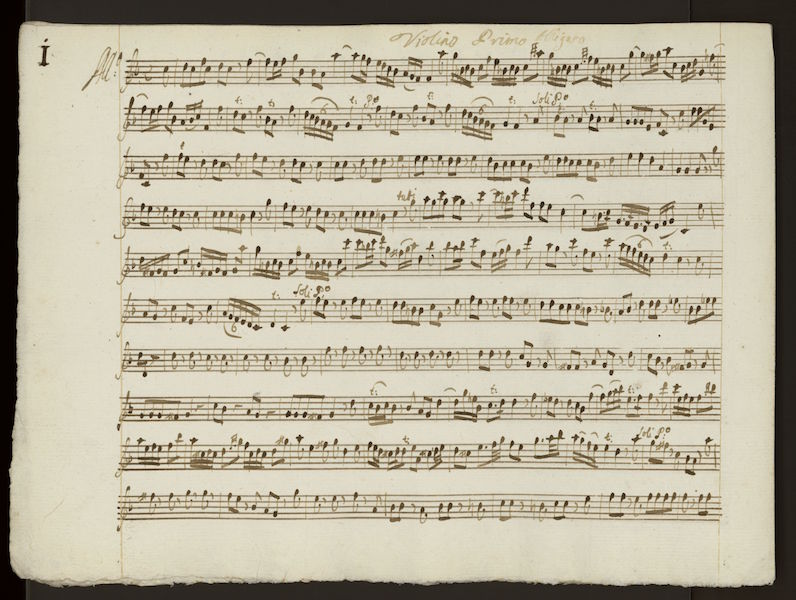 Violino Primo
1
All.º
t: t: t: Pº t: t: soli Pº t:
tutti
t:
t: soli Pº
t: t: t:
t: t: t: soli Pº